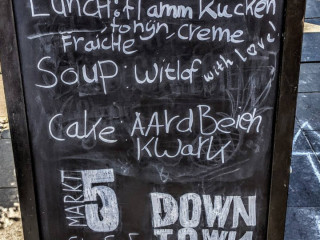 Lunch: flammKucken
tonyn, creme
Fraiche
Soup Witlof with love!
Cake AArdBeien
KwarK
MARKT 5
DOWN
TOWN